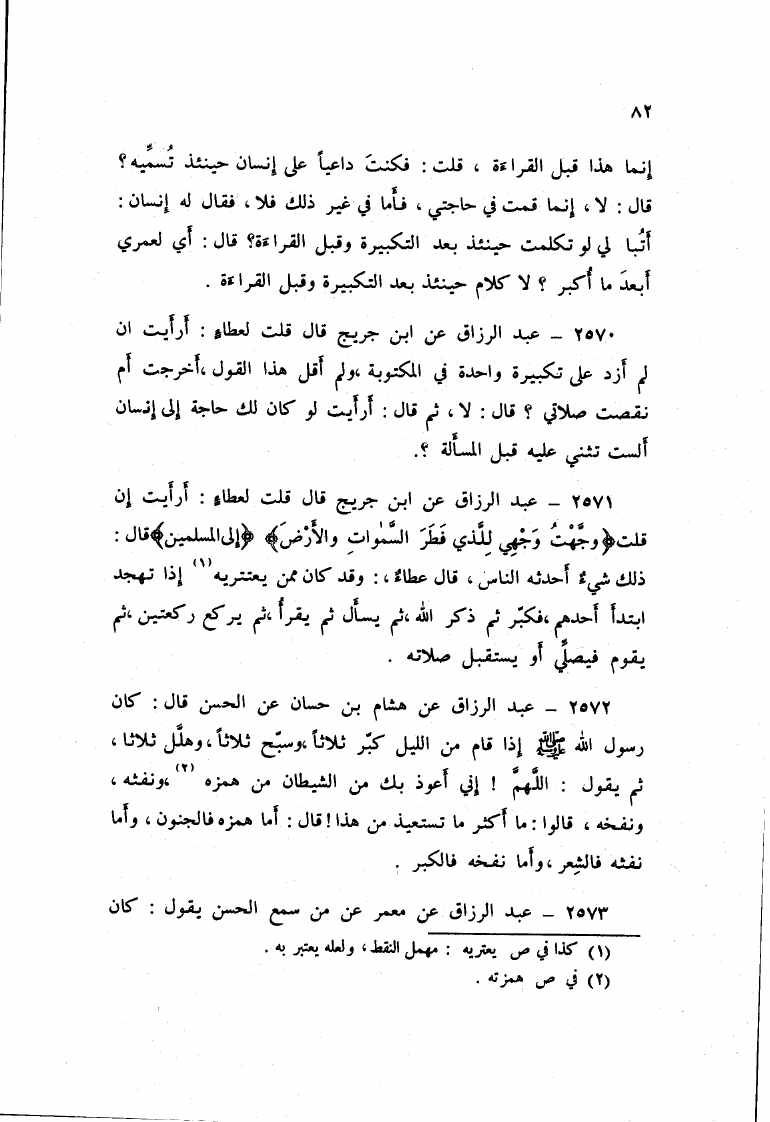 ٨٢
إنما هذا قبل القراءة ، قلت : فكنتَ داعياً على إنسان حينئذ تُسمِّيه ؟
قال : لا ، إنما قمت في حاجتي ، فأما في غير ذلك فلا ، فقال له إنسان :
أتُبا لي لو تكلمت حينئذ بعد التكبيرة وقبل القراءة؟ قال : أي لعمري
أبعدَ ما أُكبر ؟ لا كلام حينئذ بعد التكبيرة وقبل القراءة .
٢٥٧٠ – عبد الرزاق عن ابن جريج قال قلت لعطاءٍ : أرأيت ان
لم أزد على تكبيرة واحدة في المكتوبة ،ولم أقل هذا القول ،أخرجت أم
نقصت صلاتي ؟ قال : لا ، ثم قال : أرأيت لو كان لك حاجة إلى إنسان
ألست تثني عليه قبل المسألة ؟.
٢٥٧١ – عبد الرزاق عن ابن جريج قال قلت لعطاءٍ : أرأيت إن
قلت﴿وجَّهْتُ وَجْهِي لِلَّذي فَطَرَ السَّمٰواتِ والأَرْضَ﴾ ﴿إلى المسلمين﴾قال :
ذلك شيءٌ أحدثه الناس ، قال عطاءٌ ، : وقد كان ممن يعتتريه(١) إذا تهجد
ابتدأ أحدهم ،فكبّر ثم ذكر الله ،ثم يسأل ثم يقرأ ،ثم يركع ركعتين ،ثم
يقوم فيصلِّي أو يستقبل صلاته .
٢٥٧٢ – عبد الرزاق عن هشام بن حسان عن الحسن قال : كان
رسول الله ﷺ إذا قام من الليل كبّر ثلاثاً ،وسبّح ثلاثاً ، وهلَّل ثلاثا ،
ثم يقول : اللَّهمَّ ! إني أعوذ بك من الشيطان من همزه (٢) ،ونفثه ،
ونفخه ، قالوا : ما أكثر ما تستعيذ من هذا ! قال : أما همزه فالجنون ، وأما
نفثه فالشِعر ،وأما نفخه فالكبر .
٢٥٧٣ – عبد الرزاق عن معمر عن من سمع الحسن يقول : كان
(١) كذا في ص يعتريه : مهمل النقط ، ولعله يعتبر به .
(٢) في ص همزته .